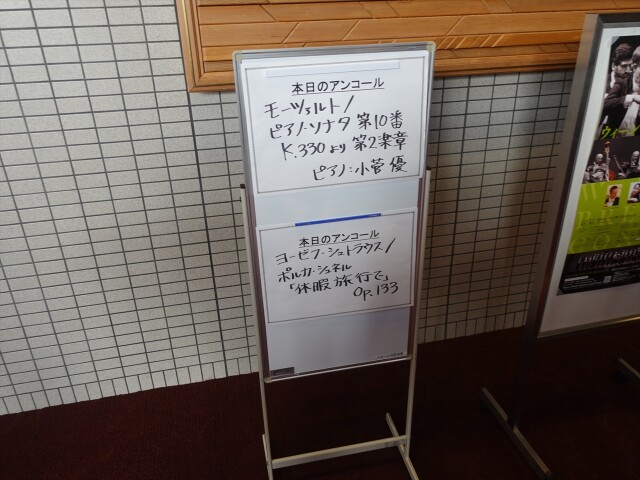 本日のアンコール
モーツァルト/
ピアノ・ソナタ 第10番
K.330より 第2楽章
ピアノ:小菅 優
本日のアンコール
ヨーゼフ・シュトラウス/
ポルカ・シュネル
「休暇旅行で」
Op.133
ウィーン